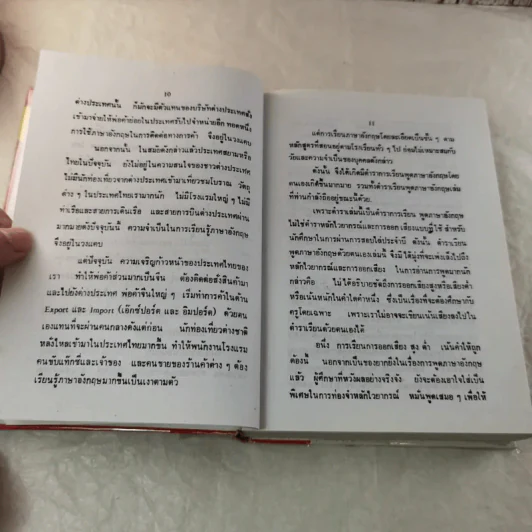 10
ต่างประเทศนั้น ก็มักจะมีตัวแทนของบริษัทต่างประเทศสั่ง
เข้ามาจ่ายให้พ่อค้าย่อยในประเทศรับไปจำหน่ายอีก ทอดหนึ่ง
การใช้ภาษาอังกฤษในการติดต่อทางการค้า จึงอยู่ในวงแคบ
นอกจากนั้น ในสมัยดังกล่าวแล้วประเทศสยามหรือ
ไทยในปัจจุบัน ยังไม่อยู่ในความสนใจของชาวต่างประเทศ
ไม่มีนักท่องเที่ยวจากต่างประเทศเข้ามาเที่ยวชมโบราณ วัตถุ
ต่าง ๆ ในประเทศไทยเรามากนัก ไม่มีโรงแรมใหญ่ ๆ ไม่มี
ท่าเรือและสายการเดินเรือ และสายการบินต่างประเทศผ่าน
มากมายดังปัจจุบันนี้ ความจำเป็นในการเรียนรู้ภาษาอังกฤษ
จึงอยู่ในวงแคบ
แต่ปัจจุบัน ความเจริญก้าวหน้าของประเทศไทยของ
เรา ทำให้พ่อค้าส่วนมากเป็นจีน ต้องติดต่อสั่งสินค้ามา
และไปยังต่างประเทศ พ่อค้าจีนใหญ่ ๆ เริ่มทำการค้าในด้าน
Export และ Import (เอ็กซ์ปอร์ต และ อิมปอร์ต) ด้วยตน
เองแทนที่จะผ่านคนกลางดังแต่ก่อน นักท่องเที่ยวต่างชาติ
หลั่งไหลเข้ามาในประเทศไทยมากขึ้น ทำให้พนักงานโรงแรม
คนขับแท๊กซี่และเจ้าของ และคนขายของร้านค้าต่าง ๆ ต้อง
เรียนรู้ภาษาอังกฤษมากขึ้นเป็นเงาตามตัว
11
แต่การเรียนภาษาอังกฤษโดยละเอียดเป็นขั้น ๆ ตาม
หลักสูตรที่สอนอยู่ตามโรงเรียนทั่ว ๆ ไป ย่อมไม่เหมาะสมกับ
วัยและความจำเป็นของบุคคลดังกล่าว
ดังนั้น จึงได้เกิดมีตำราการเรียนพูดภาษาอังกฤษโดย
ตนเองเกิดขึ้นมากมาย รวมทั้งตำราเรียนพูดภาษาอังกฤษเล่ม
ที่ท่านกำลังถืออยู่ขณะนี้ด้วย
เพราะตำราเล่มนี้เป็นตำราการเรียน พูดภาษาอังกฤษ
ไม่ใช่ตำราหลักไวยากรณ์และการออก เสียงแบบที่ ใช้ สำหรับ
นักศึกษาในการผ่านการสอบไล่ประจำปี ดังนั้น ตำราเรียน
พูดภาษาอังกฤษด้วยตนเองเล่มนี้ จึงมิได้มุ่งที่จะเพ่งเล็งไปถึง
หลักไวยากรณ์และการออกเสียง ในการอ่านการพูดมากนัก
กล่าวคือ ไม่ได้อธิบายชัดถึงการออกเสียงสูงหรือเสียงต่ำ
หรือเน้นหนักในคำใดคำหนึ่ง ซึ่งเป็นเรื่องที่จะต้องศึกษากับ
ครูโดยเฉพาะ เพราะเราไม่อาจจะเขียนเน้นเสียงลงไปใน
ตำราเรียนด้วยตนเองได้
อนึ่ง การเรียนการออกเสียง สูง ต่ำ เน้นคำให้ถูก
ต้องนั้น นอกจากเป็นของยากยิ่งในเรื่องการพูดภาษาอังกฤษ
แล้ว ผู้ศึกษาที่หวังผลอย่างจริงจัง ยังจะต้องเอาใจใส่เป็น
พิเศษในการท่องจำหลักไวยากรณ์ หมั่นพูดเสมอ ๆ เพื่อให้